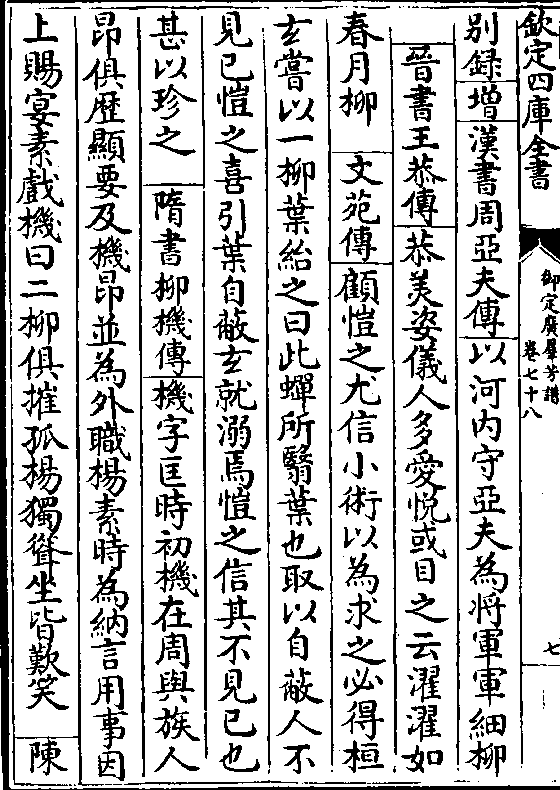 欽定四庫全書
御定廣羣芳譜
卷七十八
七
別録增漢書周亞夫傳以河内守亞夫為将軍軍細柳
晉書王恭傳恭美姿儀人多愛悦或目之云濯濯如
春月柳文苑傳顧愷之尤信小術以為求之必得桓
玄嘗以一柳葉紿之曰此蟬所翳葉也取以自蔽人不
見已愷之喜引葉自蔽玄就溺焉愷之信其不見已也
甚以珍之隋書柳機傳機字匡時初機在周與族人
昂俱歴顯要及機昂並為外職楊素時為納言用事因
上賜宴素戲機曰二柳俱摧孤楊獨聳坐皆歎笑陳